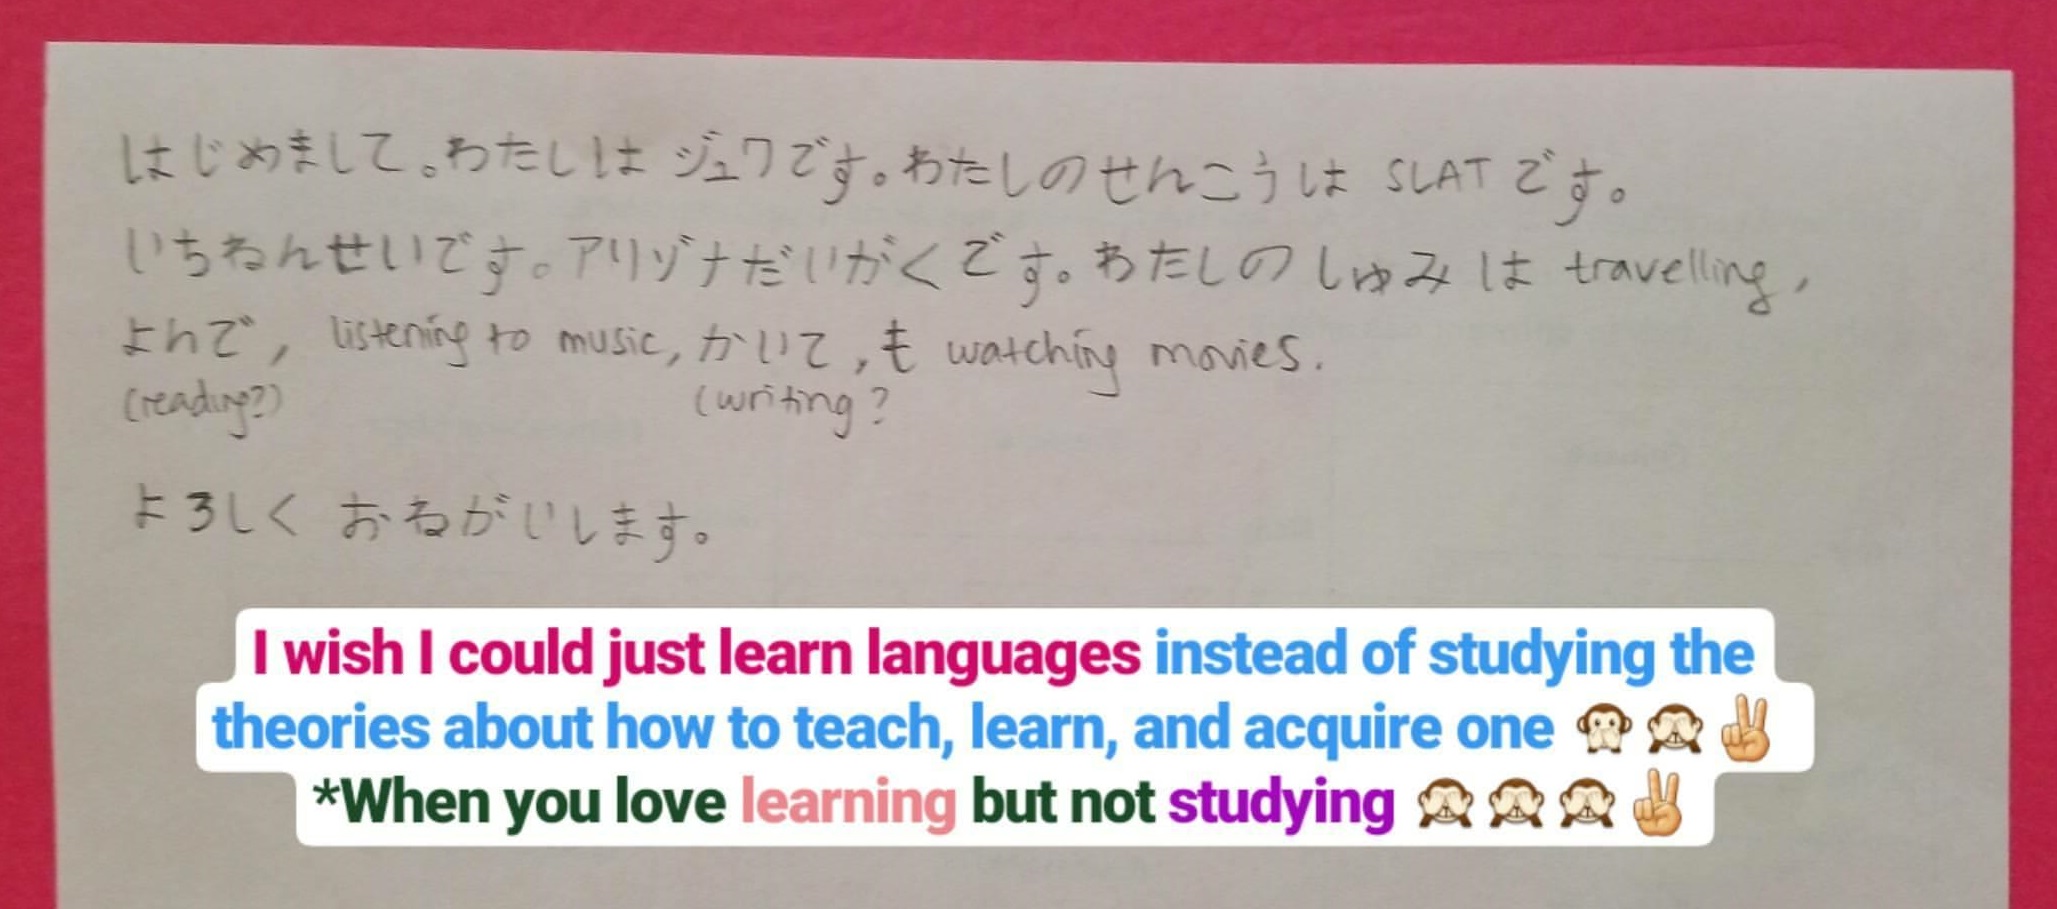 はじめまして。わたしは ジュワです。わたしのせんこうは SLAT です。
いちねんせいです。アリゾナだいがくです。わたしのしゅみは travelling,
よんで, listening to music, かいて, も watching movies.
(reading?) (writing?
よろしく おねがいします。
I wish I could just learn languages instead of studying the
theories about how to teach, learn, and acquire one 🙊 🙈 ✌🏼
*When you love learning but not studying 🙈 🙈 🙈 ✌🏼